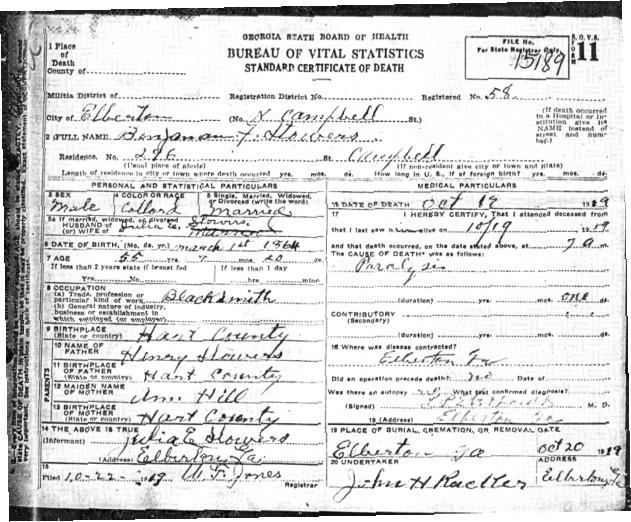 GEORGIA STATE BOARD OF HEALTH
BUREAU OF VITAL STATISTICS
STANDARD CERTIFICATE OF DEATH
FILE No.
For State Registrar Only
15189
FORM 11
1 Place of Death
County of
Militia District of Registration District No. Registered No. 58
City of Elberton No. N Campbell St.)
(If death occurred in a Hospital or Institution give its NAME instead of street and number.)
2 (FULL NAME) Benjaman F. Stowers
Residence. No. 286 St. Campbell
(Usual place of abode) (If non-resident give city or town and state)
Length of residence in city or town where death occurred yrs. mos. ds. How long in U. S., if of foreign birth? yrs. mos. ds.
PERSONAL AND STATISTICAL PARTICULARS
3 SEX Male
4 COLOR OR RACE Collord
5 Single, Married, Widowed, or Divorced (write the word) Married
5a If married, widowed, or divorced
HUSBAND of
(or) WIFE of Julia E.
6 DATE OF BIRTH. (Mo. da. yr.) March 1st 1864
7 AGE 55 yrs. 7 mos. 20
If less than 2 years state if breast fed If less than 1 day
Yrs. No. hrs. min.
8 OCCUPATION
(a) Trade, profession or particular kind of work Blacksmith
(b) General nature of industry, business or establishment in which employed (or employer)
9 BIRTHPLACE
(State or country) Hart County
10 NAME OF FATHER Henry Stowers
PARENTS
11 BIRTHPLACE OF FATHER
(State or country) Hart County
12 MAIDEN NAME OF MOTHER Ann Hill
13 BIRTHPLACE OF MOTHER
(State or country) Hart County
14 THE ABOVE IS TRUE
(Informant) Julia E Stowers
(Address) Elberton, Ga
15
Filed 10-22-1919 W. F. Jones
Registrar
MEDICAL PARTICULARS
16 DATE OF DEATH Oct 1919
17 I HEREBY CERTIFY, That I attended deceased from
that I last saw him alive on 10/19 1919
and that death occurred, on the date stated above, at 7 a m.
The CAUSE OF DEATH* was as follows:
Paralysis
(duration) yrs. mos. one ds.
CONTRIBUTORY
(Secondary)
(duration) yrs. mos. ds.
18 Where was disease contracted?
Elberton Ga
Did an operation precede death? no Date of
Was there an autopsy What test confirmed diagnosis?
(Signed) M. D.
19 (Address) Elberton Ga
19 PLACE OF BURIAL, CREMATION, OR REMOVAL DATE
Elberton Ga Oct 20 1919
20 UNDERTAKER ADDRESS
John H Elberton Ga